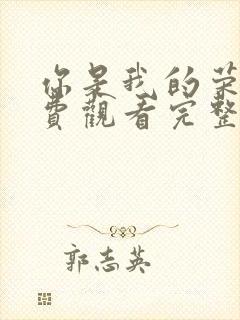 你是我的荣
費觀看完整
郭志英